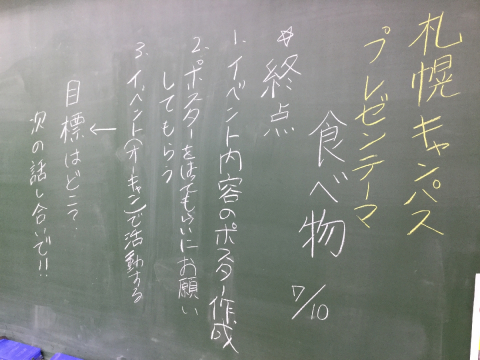 札幌キャンパス
プレゼンテーマ
食べ物 7/10
☆終点
1. イベント内容のポスター作成
2. ポスターをはてもらいにお願い
してもらう
3. イベント(オーキャン)で活動する
↓
目標はどこ?
次の話し合いで!!